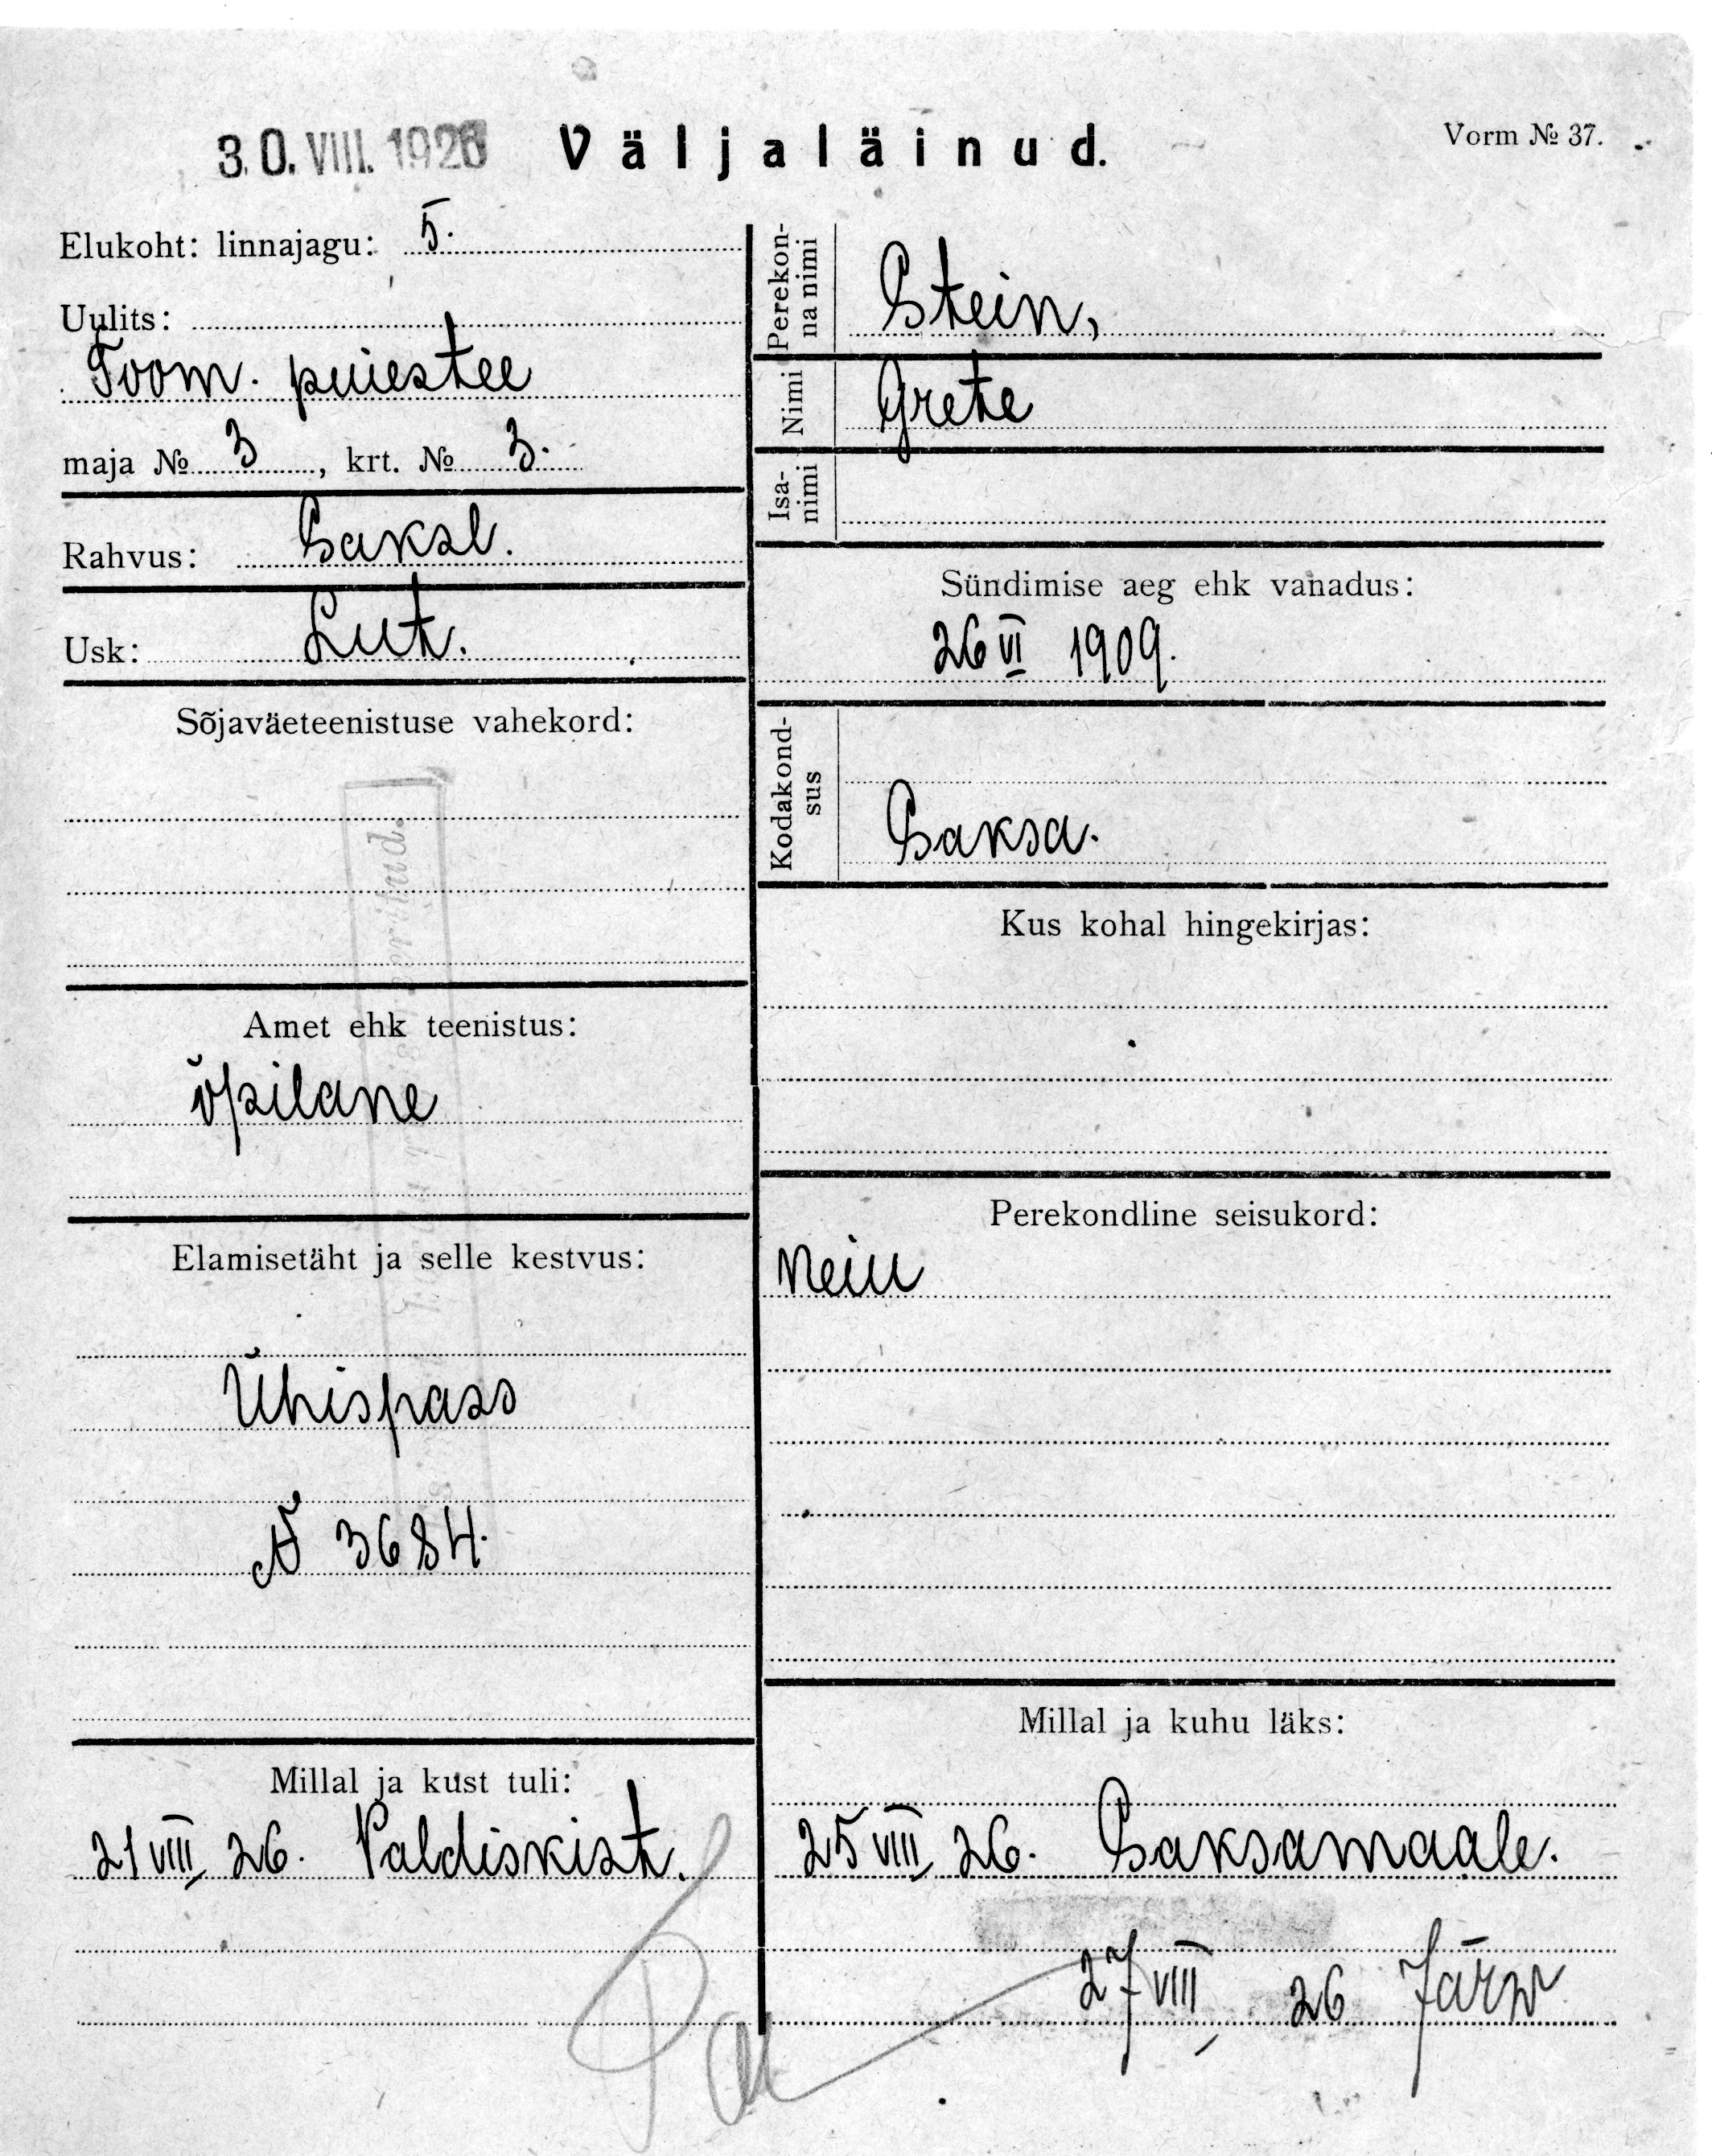 30. VIII. 1926
Väljaläinud.
Vorm № 37.
Elukoht: linnajagu: 5.
Uulits:
Toom. puiestee
maja № 3, krt. № 3.
Rahvus: Saksl.
Usk: Lut.
Sõjaväeteenistuse vahekord:
Amet ehk teenistus:
õpilane
Elamisetäht ja selle kestvus:
Ühispass
№ 3684.
Millal ja kust tuli:
21 VIII 26. Paldiskist.
Perekon-
na nimi
Stein,
Nimi
Grete
Isa-
nimi
Sündimise aeg ehk vanadus:
26 VI 1909.
Kodakond-
sus
Saksa.
Kus kohal hingekirjas:
Perekondline seisukord:
Neiu
Millal ja kuhu läks:
25 VIII 26. Saksamaale.
27 VIII 26 Järw